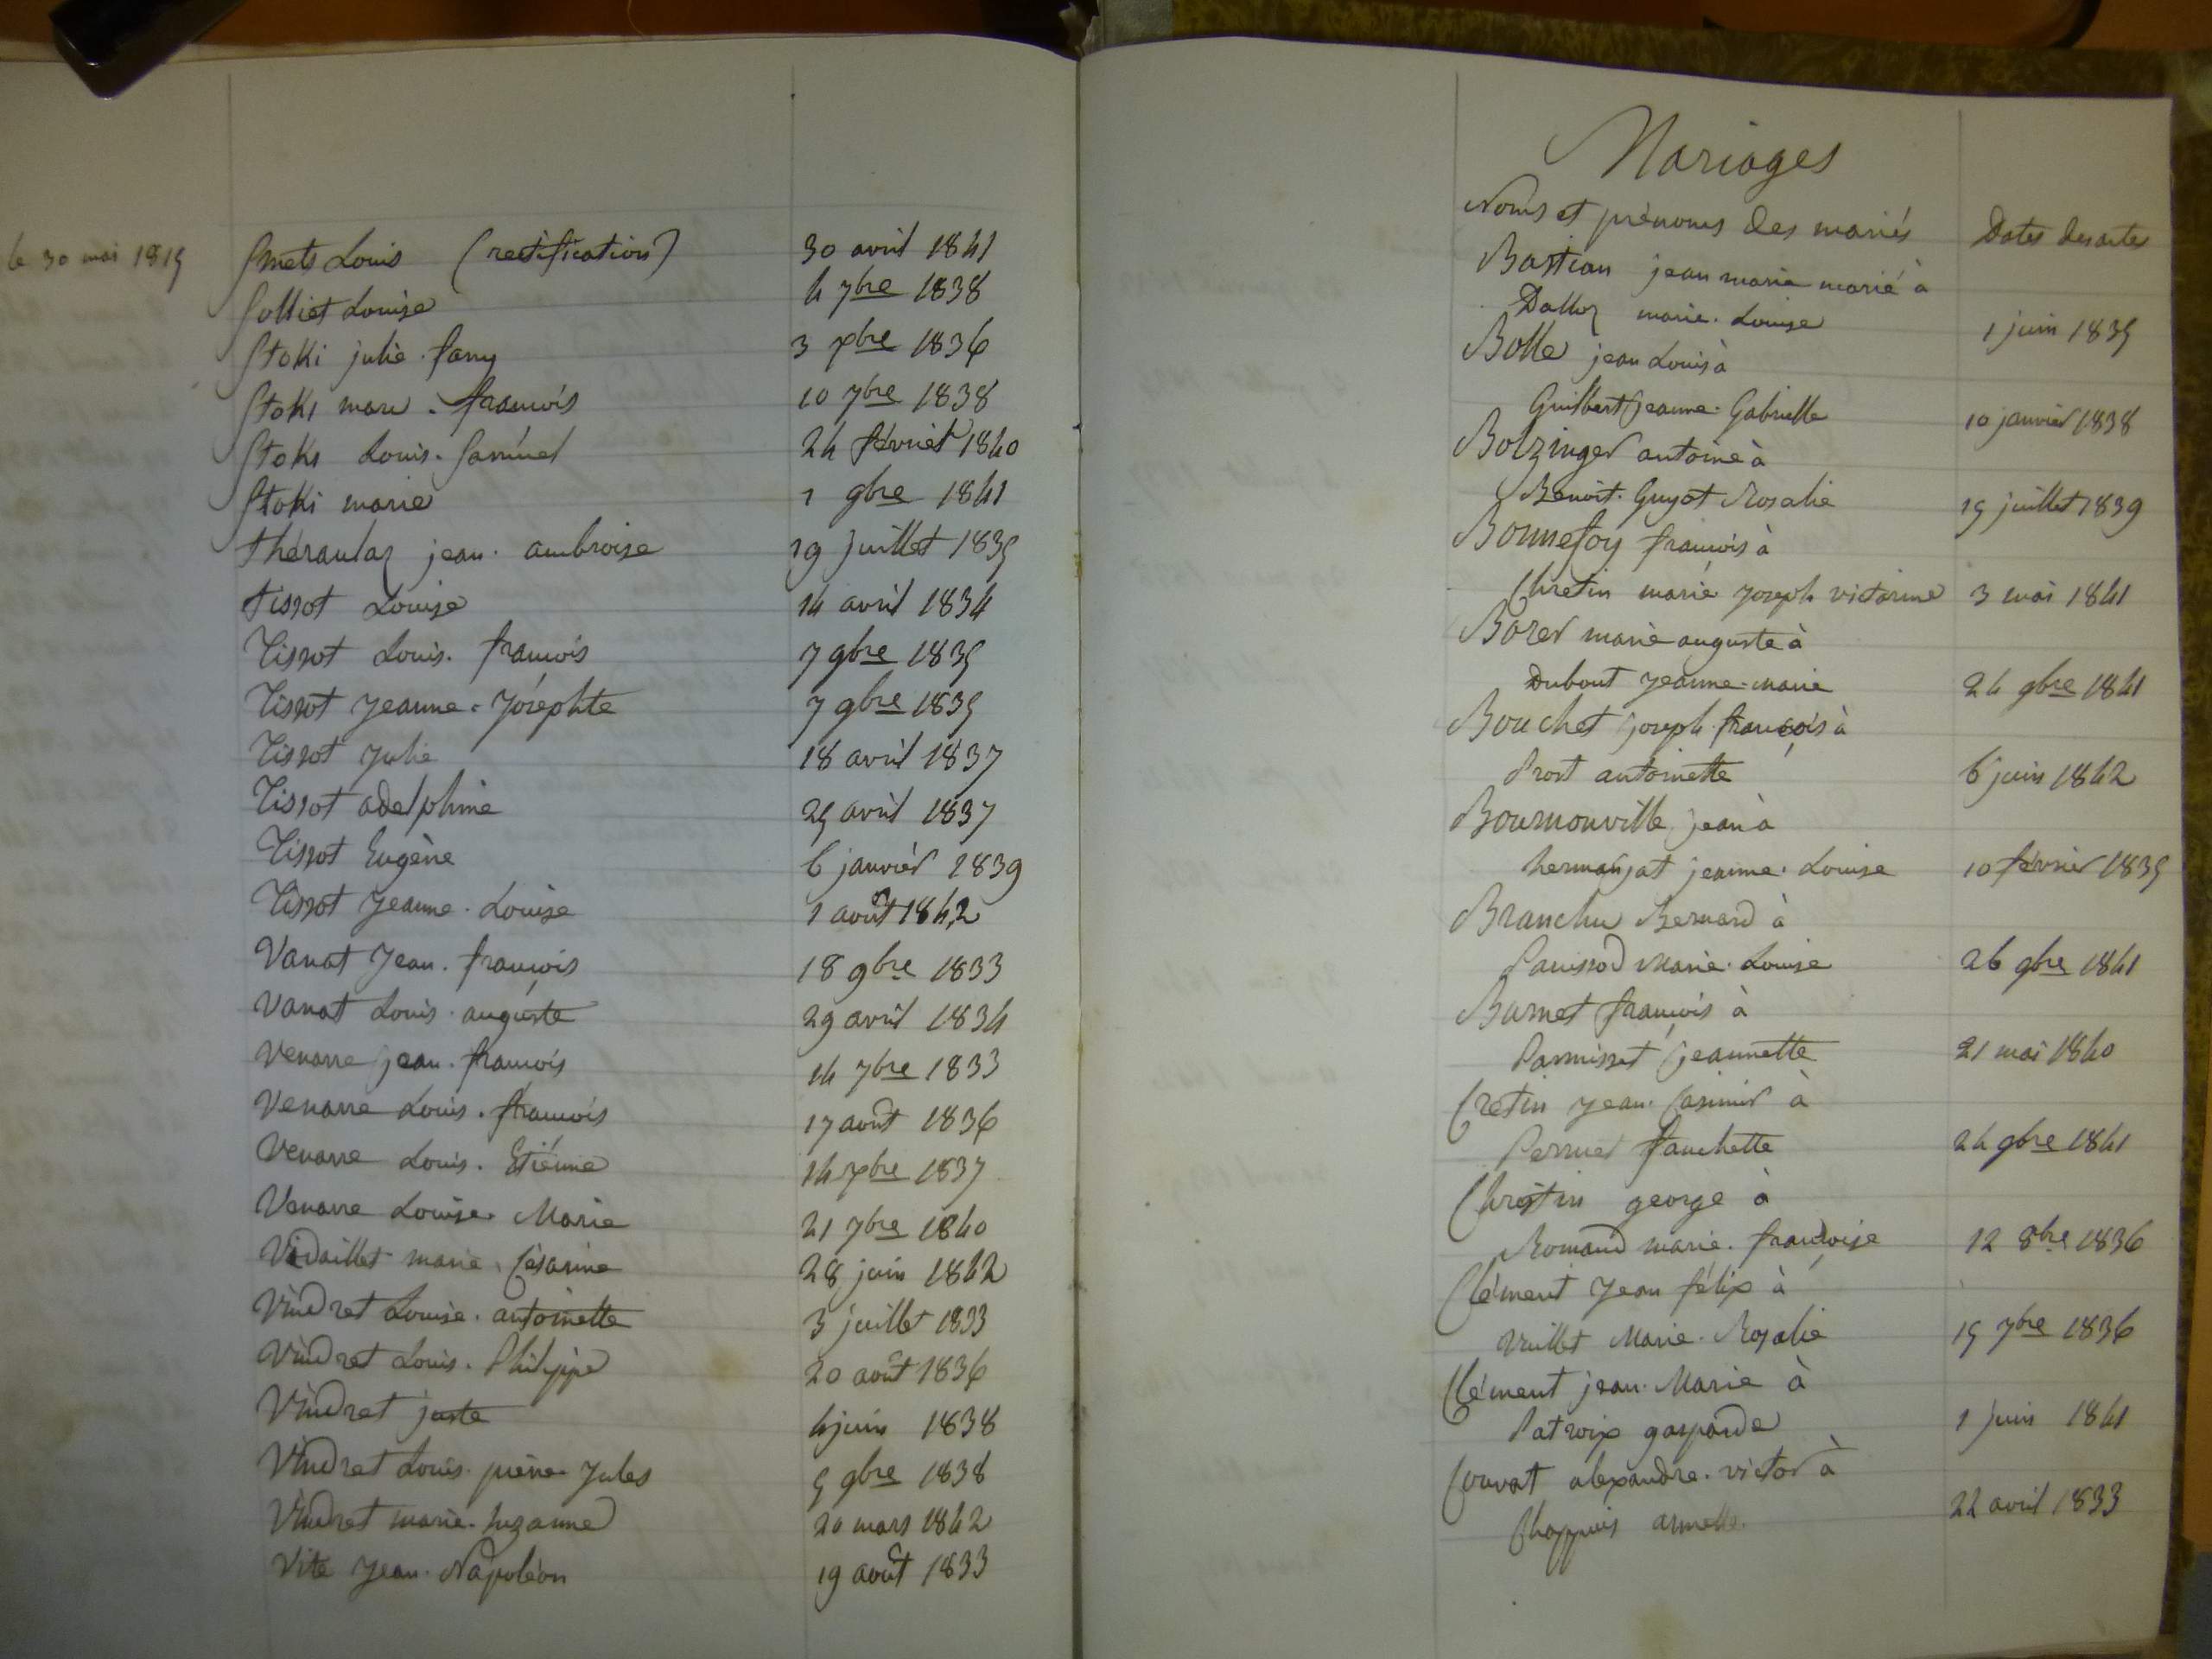 le 30 mai 1815 Smets Louis (rectification) 30 avril 1841
Solliet Louise 4 7bre 1838
Stoki julie. fany 3 xbre 1836
Stoki marc. francois 10 7bre 1838
Stoki Louis. Samuel 24 février 1840
Stoki marie 1 9bre 1841
théraulaz jean. ambroise 19 juillet 1835
tissot Louise 14 avril 1834
Tissot Louis. francois 7 9bre 1835
Tissot Jeanne. Joséphte 7 9bre 1835
Tissot Julie 18 avril 1837
Tissot adelphine 25 avril 1837
Tissot Eugène 6 janvier 1839
Tissot Jeanne. Louise 1 août 1842
Vanat Jean. francois 18 9bre 1833
Vanat Louis. auguste 29 avril 1834
Venarre jean. francois 14 7bre 1833
Venarre Louis. francois 17 août 1836
Venarre Louis. Etiénne 14 xbre 1837
Venarre Louise. Marie 21 7bre 1840
Vidaillet marie. Césarine 28 juin 1842
Vindret Louise. antoinette 3 juillet 1833
Vindret Louis. Philippe 20 août 1836
Vindret juste 4 juin 1838
Vindret Louis. pierre Jules 5 9bre 1838
Vindret marie. suzanne 20 mars 1842
Vite Jean. Napoléon 19 août 1833
Mariages
Noms et prénoms des mariés Dates des actes
Bastian jean marie marié à
Dalloz marie. Louise 1 juin 1835
Bolle jean Louis à
Guilbert jeanne. Gabrielle 10 janvier 1838
Bolzinger antoine à
Benoit. Guyot Rosalie 15 juillet 1839
Bonnefoy francois à
Chretin marie joseph victorine 3 mai 1841
Borer marie auguste à
Dubout Jeanne. marie 24 9bre 1841
Bouchet joseph. françois à
Prost antoinette 6 juin 1842
Bournonville jean à
hermanjat jeanne. Louise 10 février 1835
Branchu Bernard à
Panissod Marie. Louise 26 9bre 1841
Burnet francois à
Parmisset jeannette 21 mai 1840
Cretin Jean. Casimir à
Perrier fanchette 24 9bre 1841
Christin george à
Romand marie. françoise 12 8bre 1836
Clément Jean félix à
Vuillet Marie. Rosalie 15 7bre 1836
Clément jean. Marie à
Patroix gasparde 1 juin 1841
Convat alexandre. victor à
Chappuis armelle 22 avril 1833